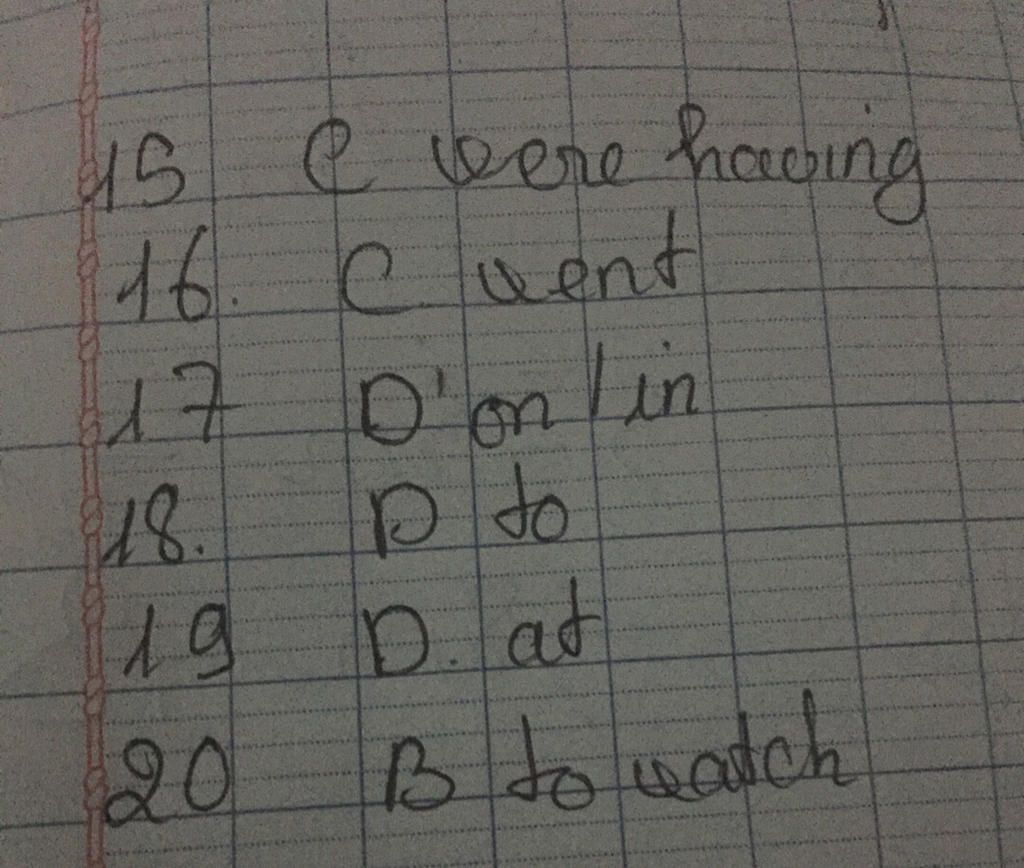 15 C were having
16. C went
17 D on / in
18. D to
19 D. at
20 B to watch